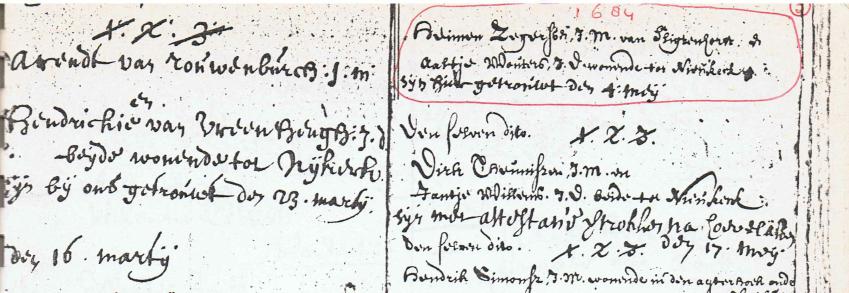 1. 2. 3.
Arendt van Rouwenburch. J. m
en
Hendrickie van Vreenheugh. J. d
beyde wonende tot Nykerck
syn by ons getrouwet den 23. marty.
den 16. marty
1684
Heimen Zegersen. J. M. van en
Aeltje Wouters. J. D. wonende tot Nieukerk
syn hier getrouwet den 4. mey
Den selven dito. 1. 2. 3.
Dirk Theunissen. J. M. en
Jantje Willems. J. D. beide tot Nieukerk
syn met attestatie vertrokken na
den 17. mey
den selven dito. 1. 2. 3.
Hendrik Simonsz. J. M. wonende in den agterhoek onder